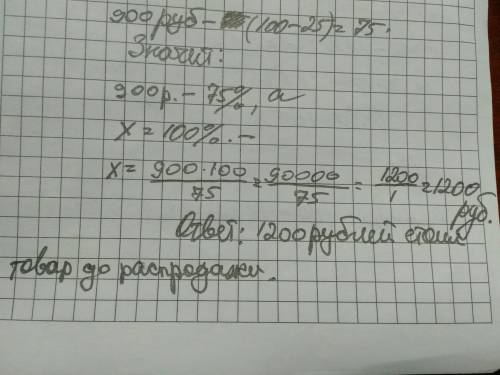 900 руб - (100-25)= 75.
Значит:
900р. - 75%, а
х = 100%. -
х= 900·100/75 = 90000/75 = 1200/1 = 1200 руб.
Ответ: 1200 рублей стоил
товар до распродажи.